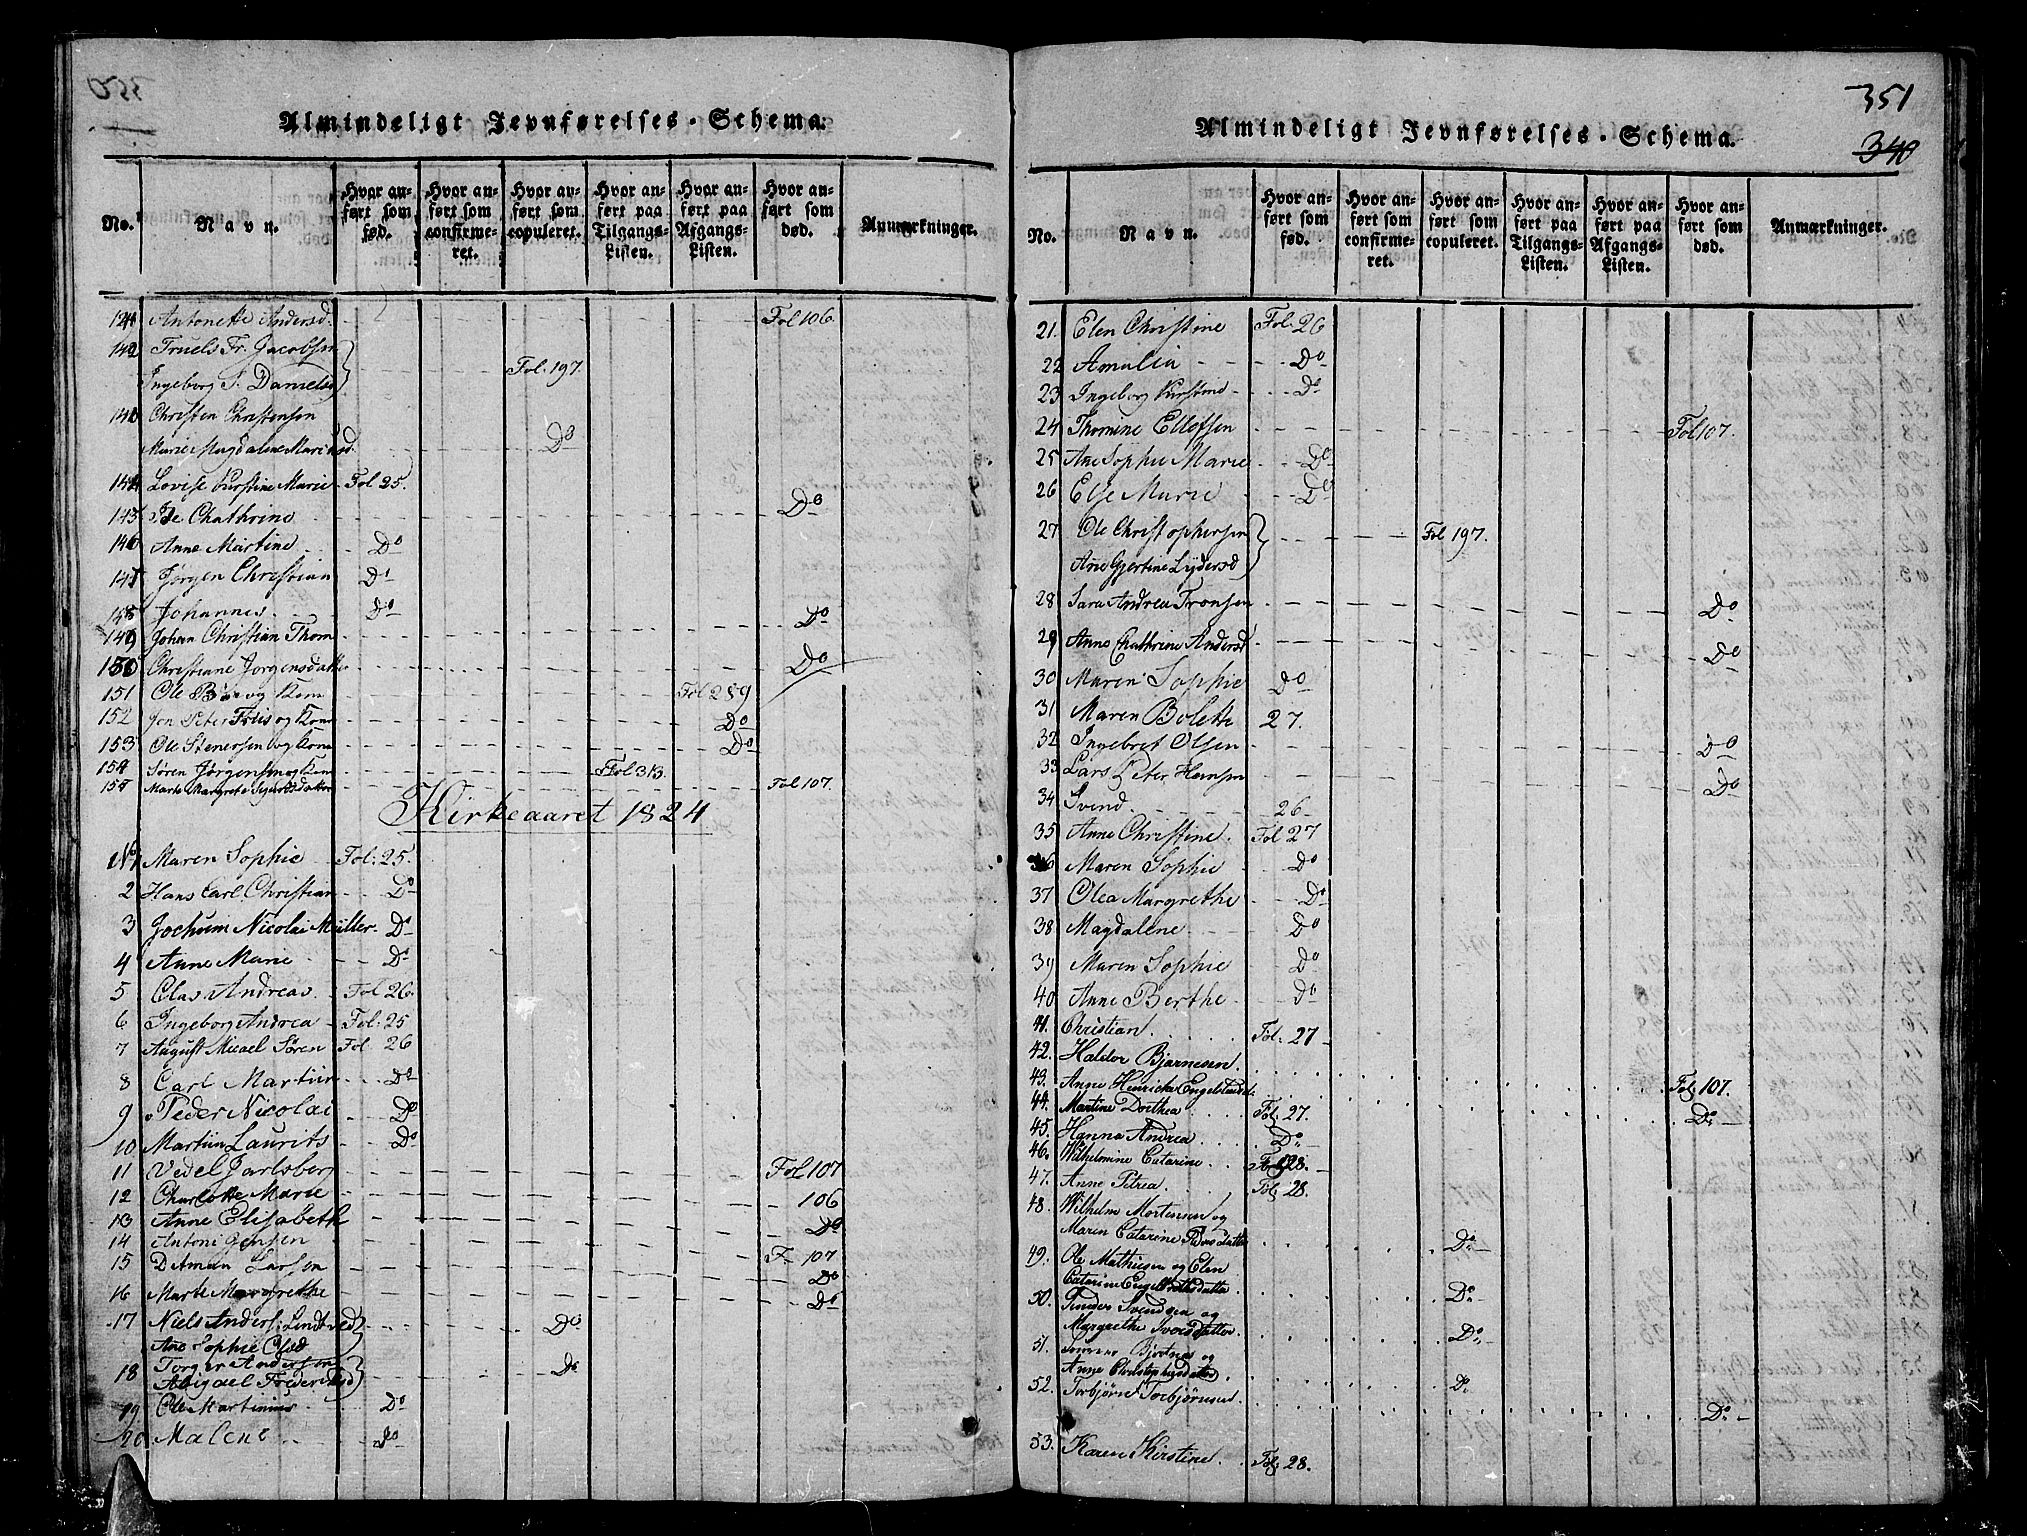 Almindeligt Jevnførelses-Schema.
No.
Navn.
Hvor anført som fød.
Hvor anført som confirmeret.
Hvor anført som copuleret.
Hvor anført paa Tilgangs-Listen.
Hvor anført paa Afgangs-Listen.
Hvor anført som død.
Anmærkninger.
Antonette Andersd. Fol 106
Truels Fr. Jacobsen
Ingeborg S. Danielsd Fol. 197
Christen Christensen
Marie Magdalene Do
Lovise Kirstine Marie Fol 25.
143 Chathrine Do
146 Anne Martine Do
147 Jørgen Christian Do
148 Johannes Do
149 Johan Christian Thom Do
150 Christiane Jorgensdatter Do
151 Ole og Kone Fol 289
152 Jon Peter Friis og Kone Do
153 Ole Stenersen og Kone Do
154 Søren Jørgensen og Kone Fol 313.
155 Marte Margrete Fol 107.
Kirkeaaret 1824
No 1 Maren Sophie Fol: 25.
2 Hans Carl Christian Do
3 Jochuim Nicolai Müller Do
4 Anne Marie Do
5 Clas Andreas Fol 26.
6 Ingeborg Andrea Fol: 25
7 August Micael Søren Fol 26
8 Carl Martin Do
9 Peder Nicolai Do
10 Martin Laurits Do
11 Vedel Jarlsberg Fol 107
12 Charlotte Marie 106
13 Anne Elisabeth Do
14 Antoni Jensen F. 107
15 Detman Larsen Do
16 Marte Margrethe Do
17 Niels Anders: Do
Ane Sophie
18 Torger Andersen Do
Abigael
19 Ole Martinius Do
20 Malene Do
351
340
Almindeligt Jevnførelses-Schema.
No.
Navn.
Hvor anført som fød.
Hvor anført som confirmeret.
Hvor anført som copuleret.
Hvor anført paa Tilgangs-Listen.
Hvor anført paa Afgangs-Listen.
Hvor anført som død.
Anmærkninger.
21. Elen Christine Fol. 26
22 Amalia Do
23 Ingeborg Kirstine Do
24 Thomine Ellefsen Fol 107.
25 Ane Sophie Marie Do
26 Else Marie Do
27 Ole Christophersen Fol 197.
Ane Gjertine Lydersd
28 Sara Andrea Tronsen Do
29 Anne Chathrine Andersd Do
30 Maren Sophie Do
31 Maren Bolette 27.
32 Ingebret Olsen Do
33 Lars Peter Hansen Do
34 Svend 26
35 Anne Christine. Fol 27
36 Maren Sophie Do
37 Olea Margrethe Do
38 Magdalene Do
39 Maren Sophie Do
40 Anne Berthe Do
41. Christian Fol. 27
42. Haldor Bjarnesen Fol. 107.
43. Anne Henricke Do
44. Martine Dorthea Fol. 27.
45. Hanna Andrea Do
46. Wilhelmine Catarine Fol 28.
47. Anne Petrea Fol. 28.
48. Wilhelm Mortensen og
Maren Catarine Do
49. Ole Mathiesen og Elen
Catarine Do
50. Svendsen og
Margrethe Do
51. og
Anne Do
52. Torbjørn Torbjørnsen Do
53. Karen Kirstine Fol. 28.